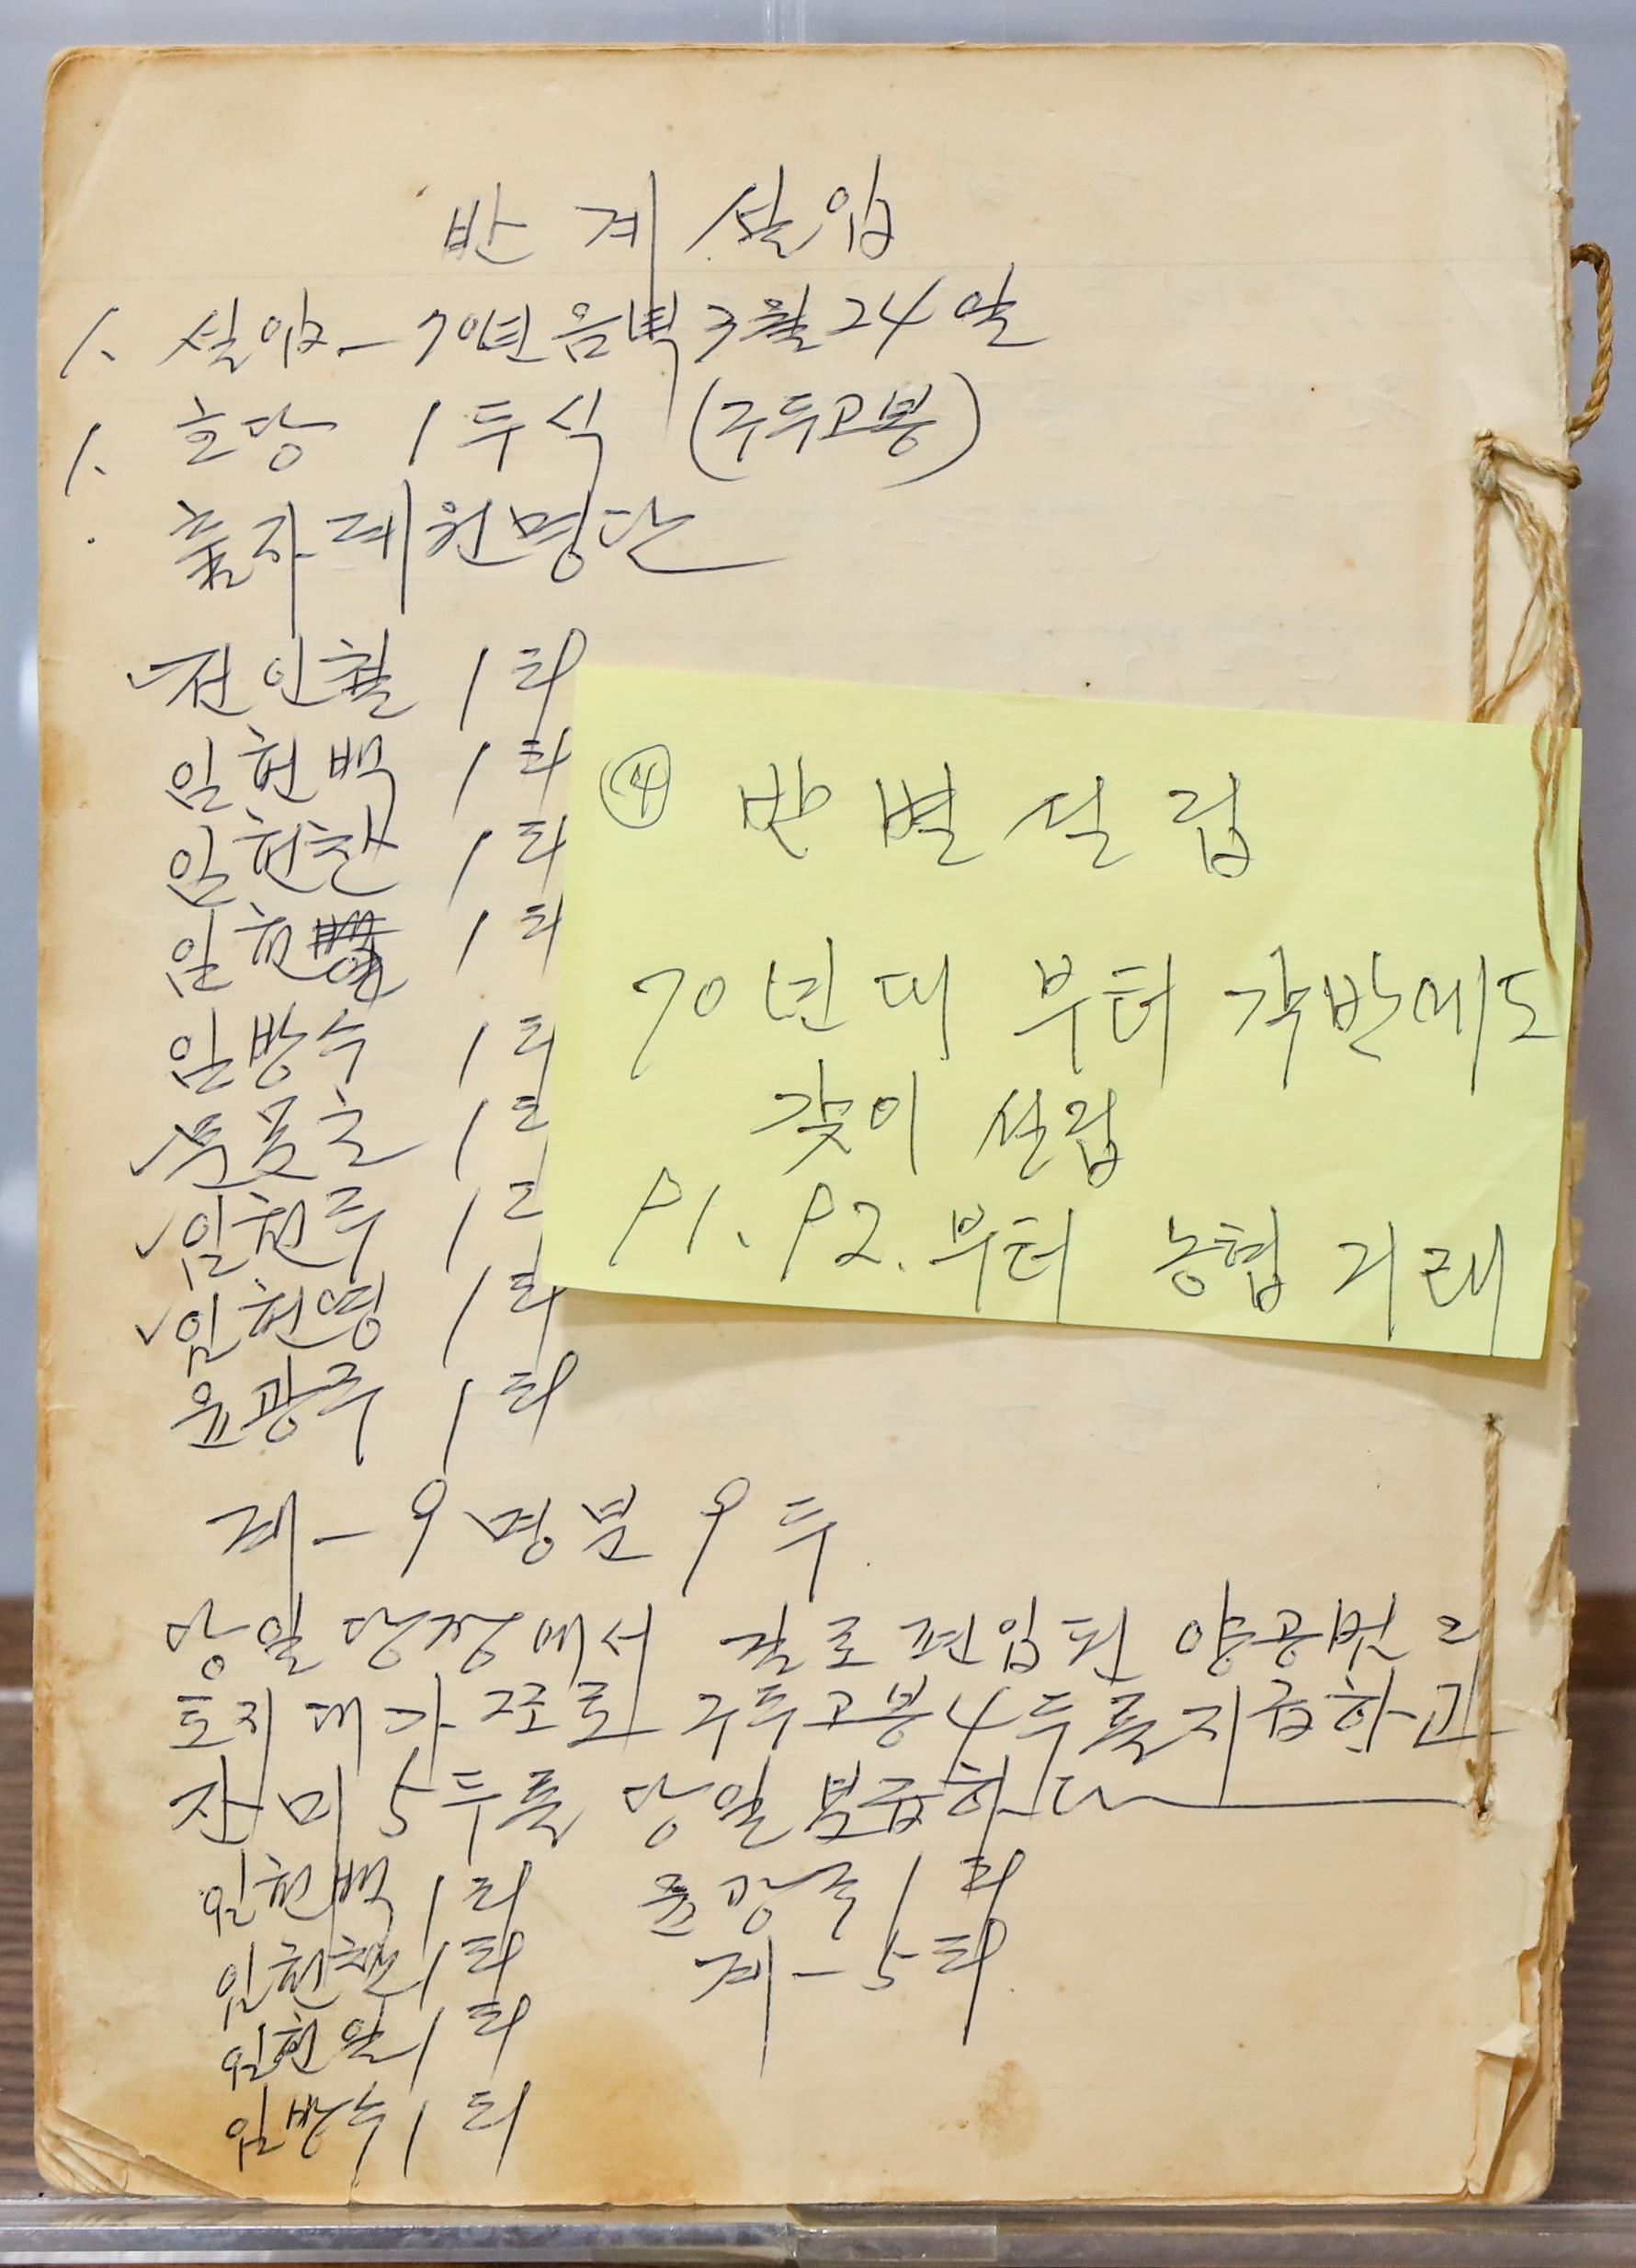 반계설입
1. 설입 - 70년 음녁 3월 24일
1. 호당 1두식 (구두고봉)
출자계원명단
전인철 1두
임헌백 1두
임헌찬 1두
임헌 1두
임방수 1두
임헌주 1
임헌영 1두
윤광주 1두
계 - 9명분 9두.
당일 당장에서 길로 편입된 양공번
토지 대가 조로 구두고봉 4두를 지급하고
잔미 5두를 당일 분급하다
임헌백 1두 윤광주 1두
임헌찬 1두 계 - 5두.
임헌일 1두
임방수 1두
④ 반별설립
70년대 부터 각반에도
같이 설립
P1. P2. 부터 농협 거래